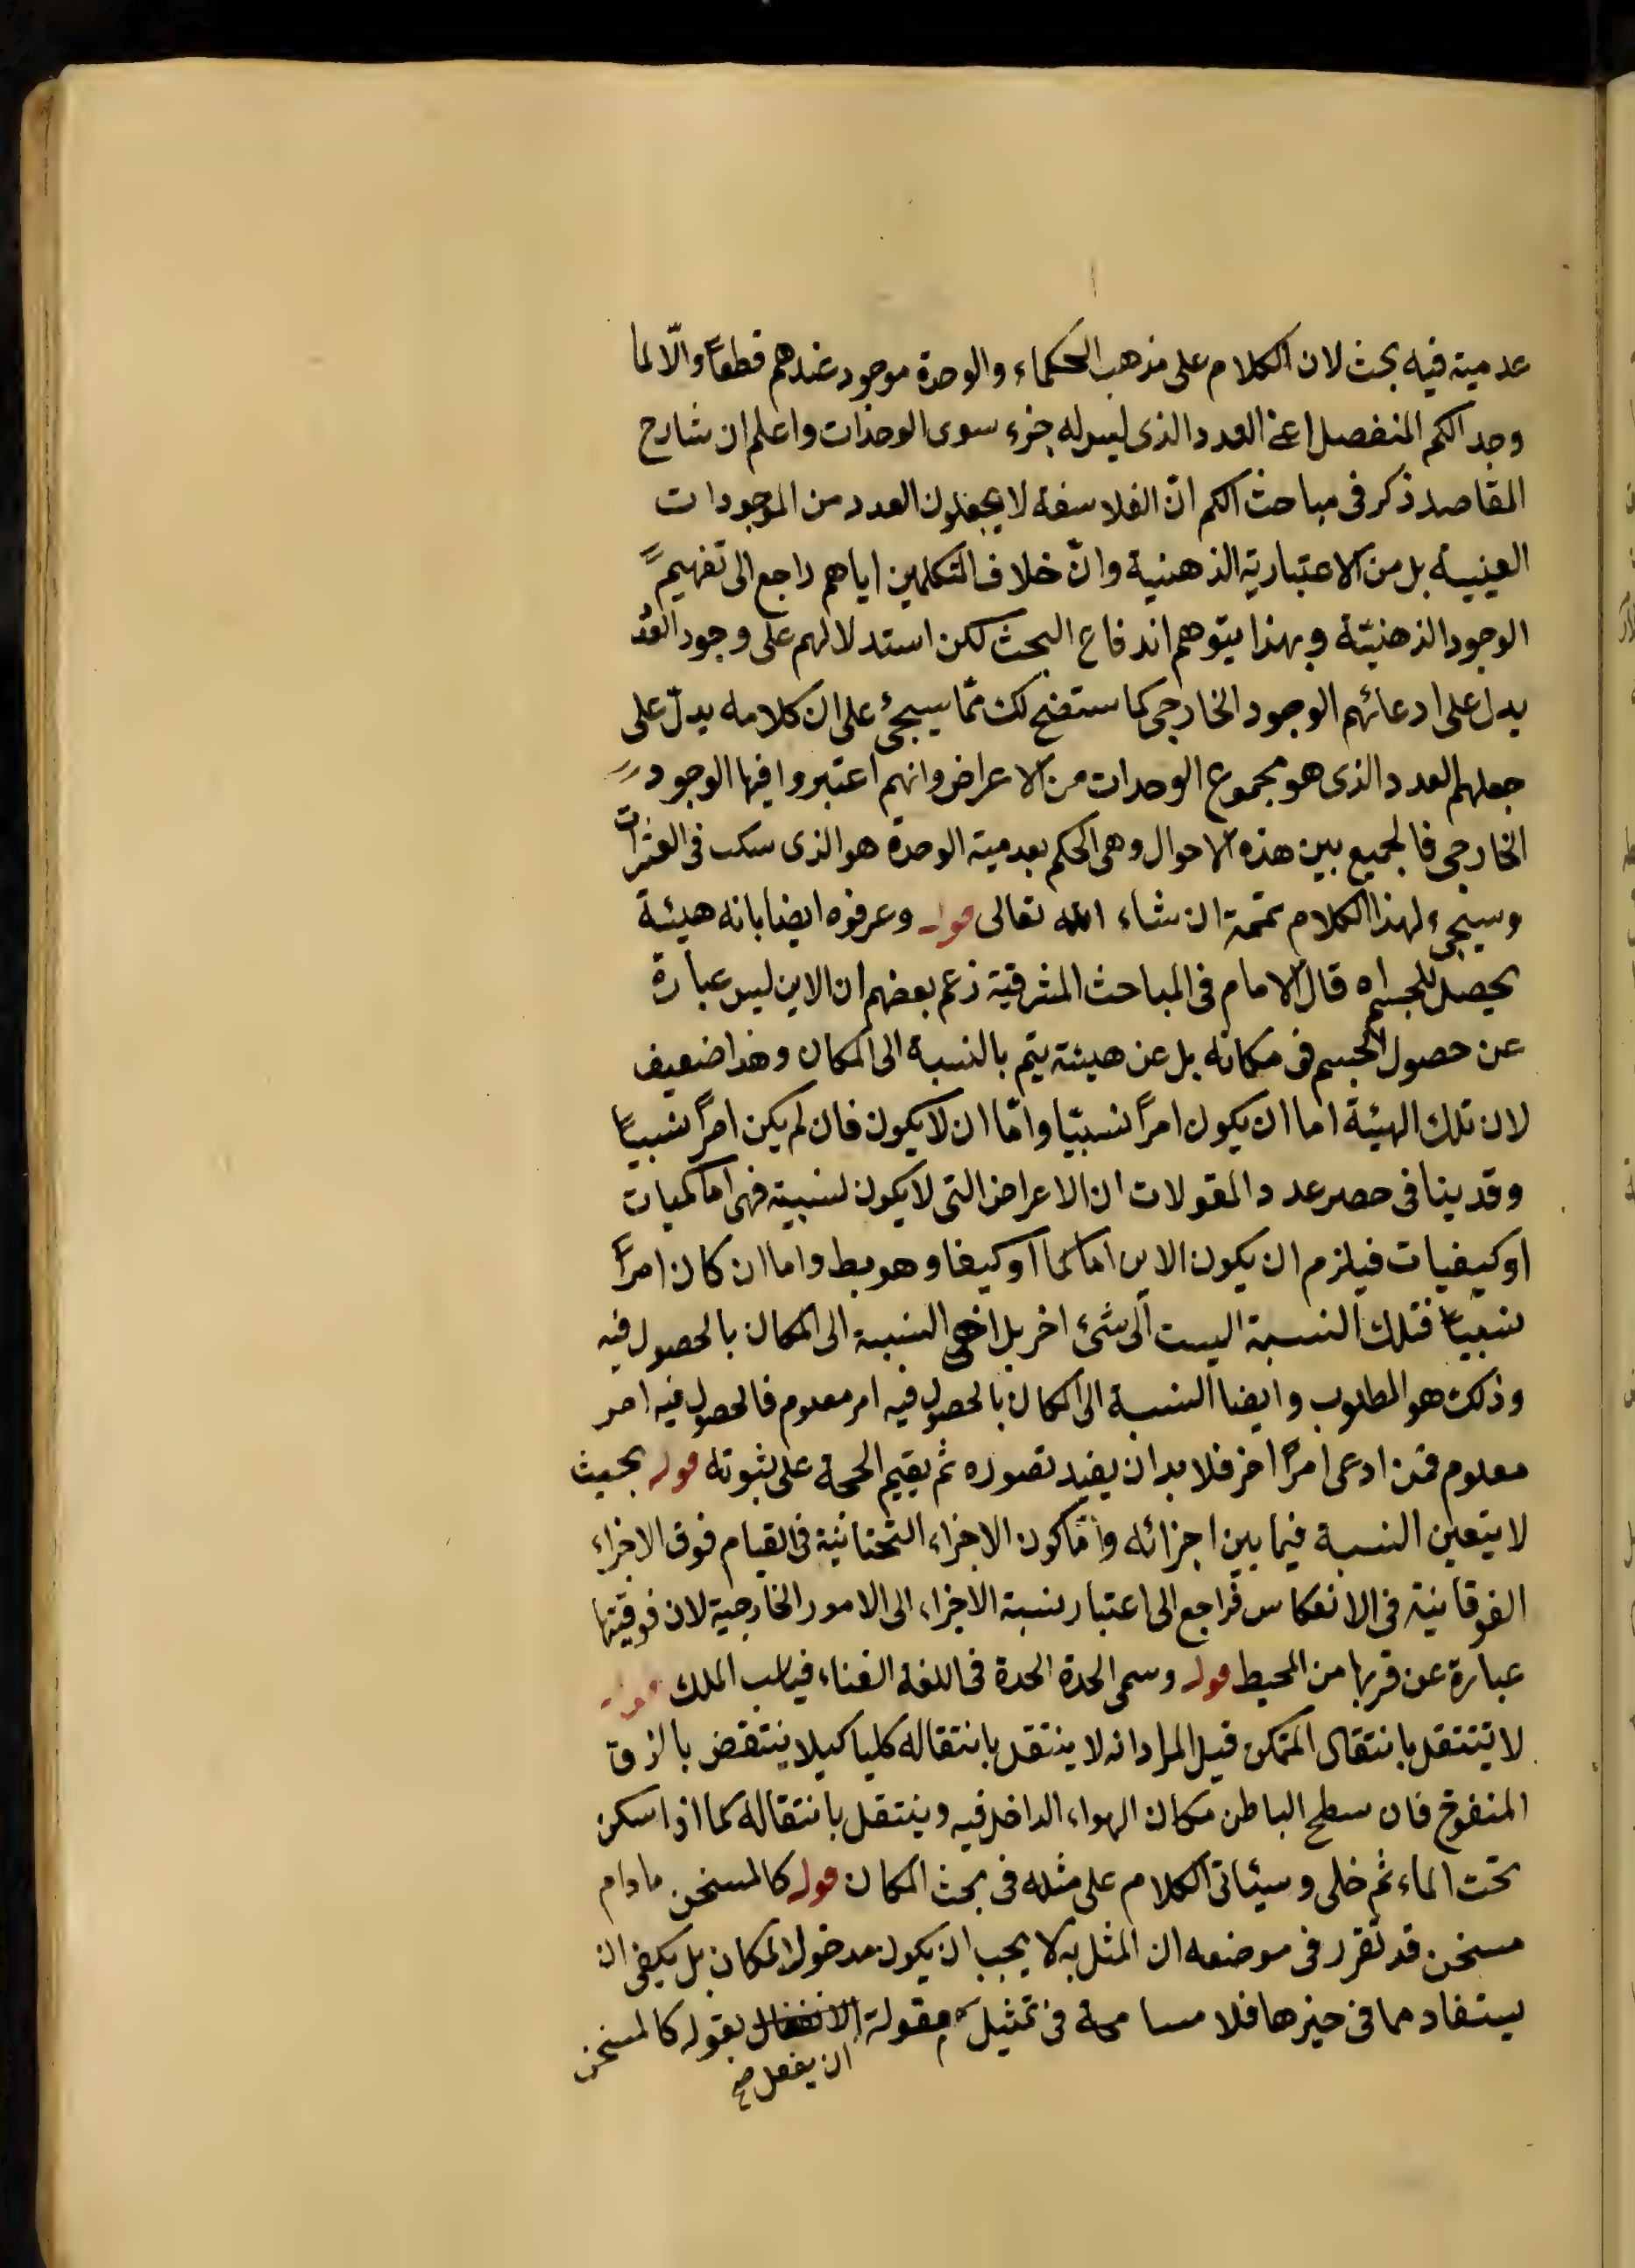 عدمية فيه بحث لان الكلام على مذهب الحكماء والوحدة موجود عندهم قطعاً والّا لما
وجد الكم المنفصل اعنى العدد الذى ليس له جزء سوى الوحدات واعلم ان شارح
المقاصد ذكر فى مباحث الكم انّ الفلاسفة لا يجعلون العدد من الموجودات
العينية بل من الاعتبارية الذهنية وانّ خلاف المتكلمين اياهم راجع الى نفيهم
الوجود الذهنيّة وبهذا يتوهم اندفاع البحث لكن استدلالهم على وجود العدد
يدل على ادعائهم الوجود الخارجى كما ستضح لك ممّا سيجئ على ان كلامه يدلّ على
جعلهم العدد الذى هو مجموع الوحدات من الاعراض وانهم اعتبروا فيها الوجود
الخارجى فالجميع بين هذه الاحوال وهى الحكم بعدمية الوحدة هو الذى سكب فى العثرات
وسيجىء لهذا الكلام تتمة ان شاء الله تعالى قوله وعرفوه ايضا بانه هيئة
يحصل للجسم اه قال الامام فى المباحث المشرقية زعم بعضهم ان الاين ليس عبارة
عن حصول الجسم فى مكانه بل عن هيئة يتم بالنسبة الى المكان وهذا ضعيف
لان تلك الهيئة اما ان يكون امراً نسبيّا وامّا ان لا يكون فان لم يكن امراً نسبياً
وقد بينا فى حصر عدد المقولات ان الاعراض التى لا يكون نسبية فهى اما كميات
او كيفيات فيلزم ان يكون الاين اما كما او كيفا وهو بط واما ان كان امراً
نسبياً فتلك النسبة اليست الى شئ اخر بل اخى النسبة الى المكان بالحصول فيه
وذلك هو المطلوب وايضا النسبة الى المكان بالحصول فيه امر معلوم فالحصول فيه امر
معلوم فمن ادعى امراً اخر فلا بد ان يفيد تصوره ثم يقيم الحجة على ثبوته قوله بحيث
لا يتعين النسبة فيما بين اجزائه وامّا كون الاجزاء التحتانية فى القيام فوق الاجزاء
الفوقانية فى الانعكاس فراجع الى اعتبار نسبة الاجزاء الى الامور الخارجية لان فوقيتها
عبارة عن قربها من المحيط قوله وسمى الجدة الجدة فى اللغة الغناء فيناسب الملك قوله
لا ينتقل بانتقال المتمكن قيل المراد انه لا ينتقل بانتقاله كليا كيلا ينتقض بالزق
المنفوخ فان سطح الباطن مكان الهواء الداخل فيه وينتقل بانتقاله كما اذا سكن
تحت الماء ثم خلى وسيئاتى الكلام على مثله فى بحث المكان قوله كالمسخن مادام
مسخن قد تقرر فى موضعه ان المثل به لا يجب ان يكون مدخول المكان بل يكفى ان
يستفاد مما فى حيزها فلا مسامحة فى تمثيل مقولة الانفعال بقوله كالمسخن
ان يفعل صح